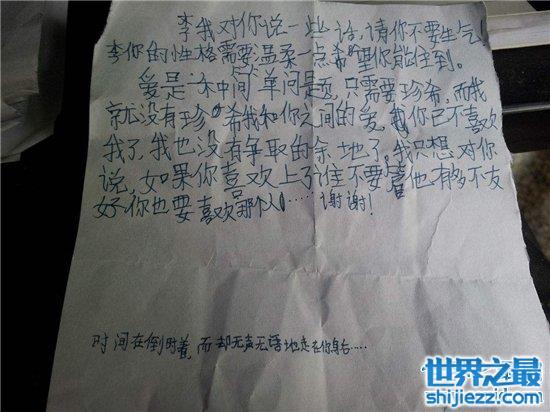 李我对你说一些话,请你不要生气!
李你的性格需要温柔一点希望你能住到。
爱是一种简单问题,只需要珍希,而我
就没有珍希我和你之间的爱,你已不喜欢
我了,我也没有争取的余地了,我只想对你
说,如果你喜欢上了谁不要管他有多不友
好你也要喜欢那个人……谢谢!
时间在倒时着,而却无声无语地走在你身后……
世界之最
shijiezzi.com